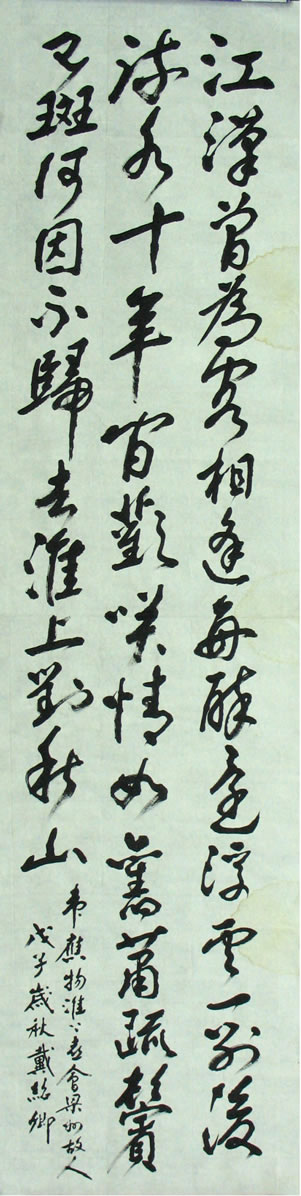 江漢曾為客相逢每醉還浮雲一別後
流水十年間歡笑情如舊蕭疏鬢
已斑何因不歸去淮上對秋山
韦應物淮上喜會梁州故人
戊子歲秋戴紹卿